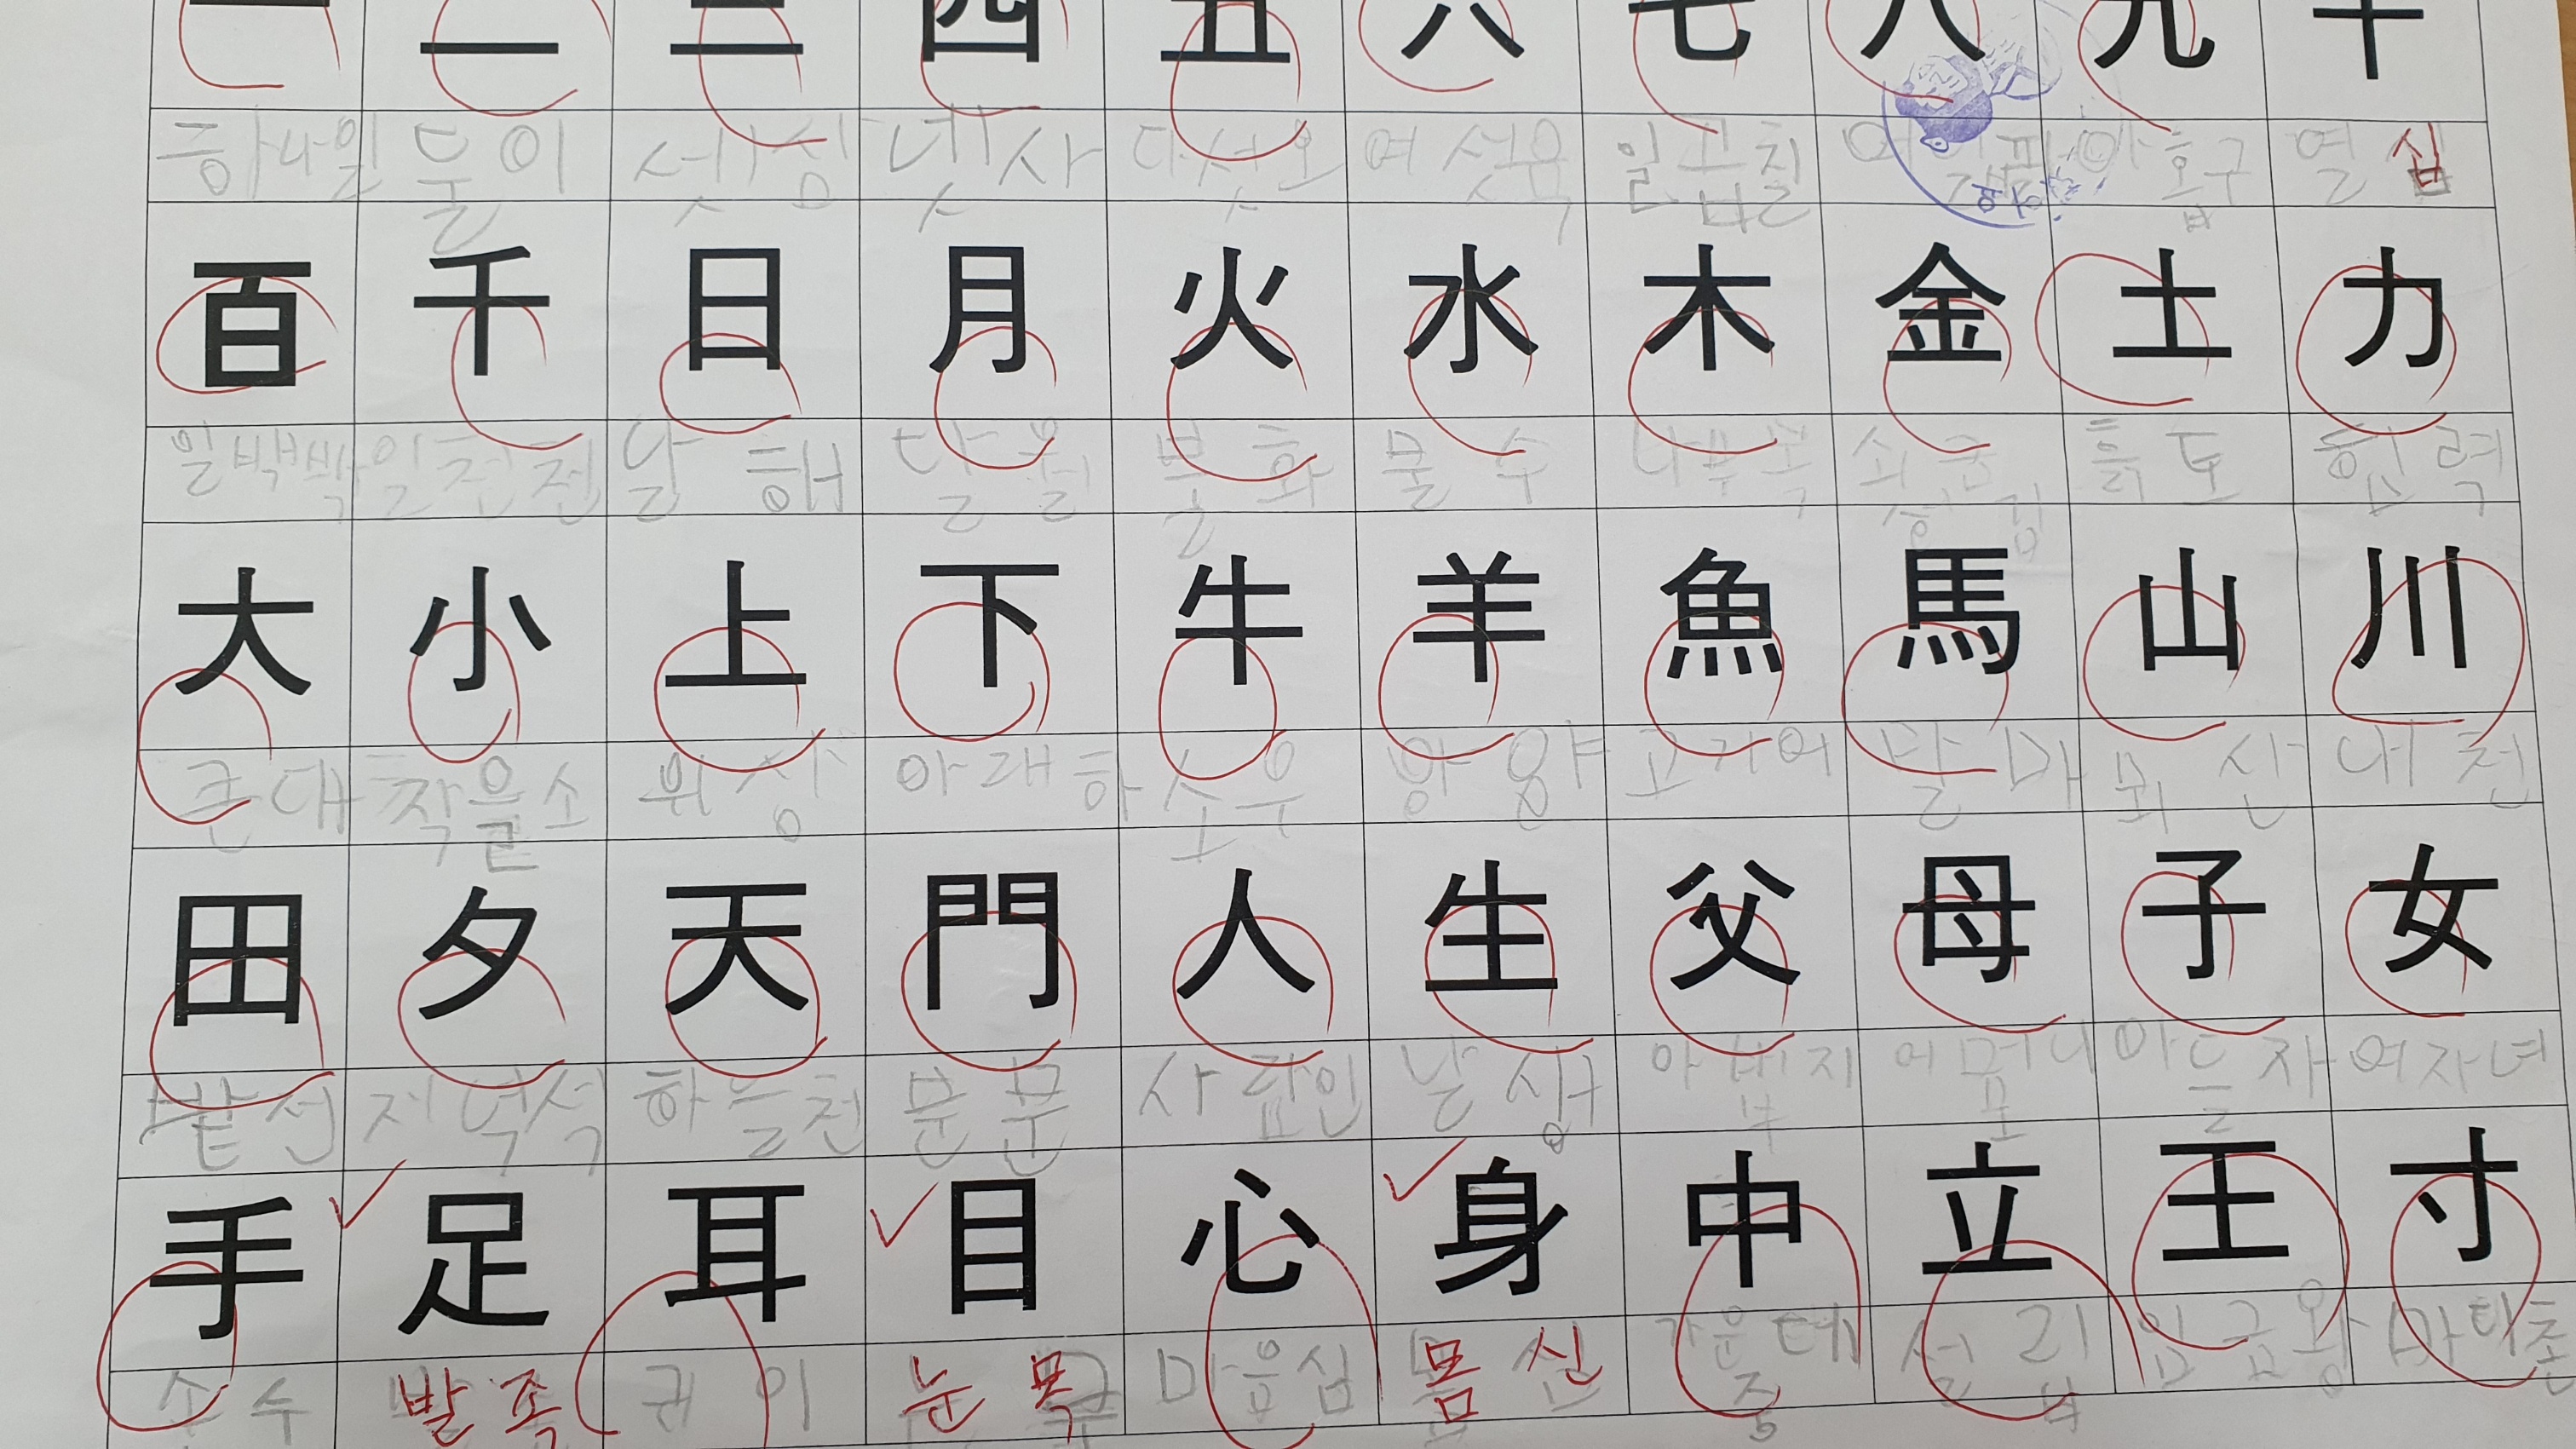 一 二 三 四 五 六 七 八 九 十
하나일 둘이 셋삼 넷사 다섯오 여섯육 일곱칠 아홉구 열 십
百 千 日 月 火 水 木 金 土 力
일백백 일천천 날 해 달 월 불 화 물 수 나무목 쇠금 김 흙 토 힘 력
大 小 上 下 牛 羊 魚 馬 山 川
큰대 작을소 위 상 아래 하 소 우 양 양 고기어 말 마 뫼 산 내 천
田 夕 天 門 人 生 父 母 子 女
밭 전 저녁석 하늘천 문 문 사람인 날 생 아버지 부 어머니 모 아들 자 여자녀
手 足 耳 目 心 身 中 立 王 寸
손 수 발 족 귀 이 눈 목 마음심 몸 신 가운데 중 설 립 임금왕 마디촌